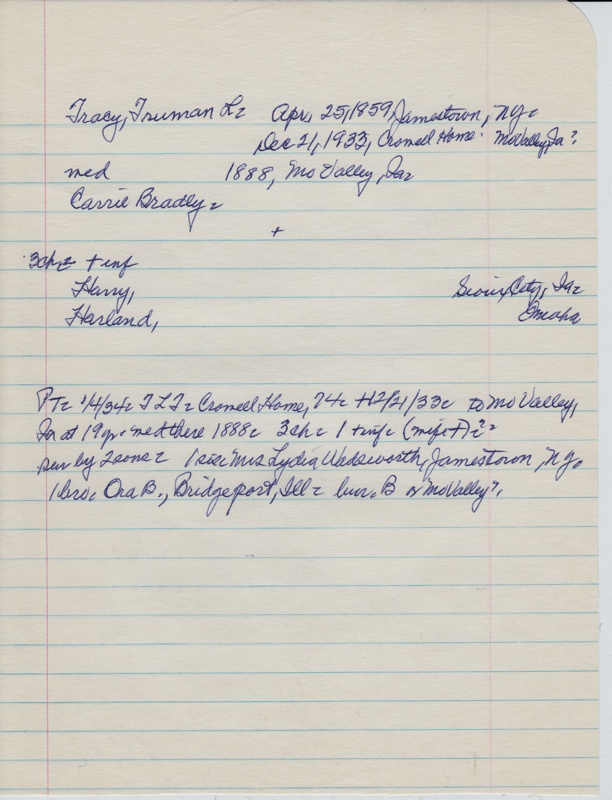 Tracy, Truman L= Apr. 25, 1859, Jamestown, NY=
Dec 21, 1933, Cromell Home. Mo Valley, Ia?
med 1888, Mo Valley, Ia=
Carrie Bradly=
+
3ch= + inf
Harry, Sioux City, Ia=
Harland, Omaha
PT= 1/4/34= T L T= Cromell Home, 74= +12/21/33= to Mo Valley,
Ia= at 19 yr= med there 1888= 3ch= 1 + inf= (wife +)=?=
sur by 2 sons= 1 sis= Mrs Lydia Wadsworth, Jamestown, NY=
1 bro= Ora B., Bridgeport, Ill= bur. B or Mo Valley?,